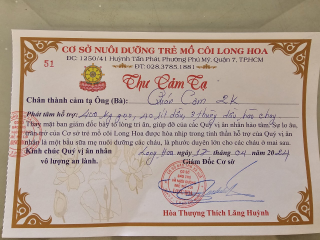 CƠ SỞ NUÔI DƯỠNG TRẺ MỒ CÔI LONG HOA
ĐC: 1250/41 Huỳnh Tấn Phát, Phường Phú Mỹ, Quận 7, TP.HCM
ĐT: 028.3785.1881
51
Thư Cảm Tạ
Chân thành cảm tạ Ông (Bà): Cháo Cơm 2K
Phát tâm hỗ trợ: 400 kg gạo, 40 lít dầu, 8 thùng dầu hào chay
Thay mặt ban giám đốc bày tỏ lòng tri ân, giúp đỡ của các Quý vị ân nhân bảo
trở của Cơ sở trẻ mồ côi Long Hoa được hòa nhịp trong tinh thần hỗ trợ của Quý vị ân
nhân là một bầu sữa mẹ nuôi dưỡng các cháu, là phước duyên lớn cho các cháu ở mai sau.
Kính chúc Quý vị ân nhân
vô lượng an lành.
Long Hoa, ngày 17 04 2024
Giám Đốc Cơ sở
Hòa Thượng Thích Lăng Huỳnh